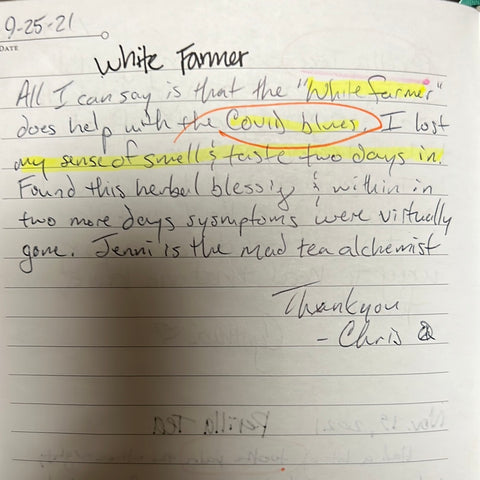 9-25-21
DATE
White Farmer
All I can say is that the "White farmer"
does help with the Covid blues. I lost
my sense of smell & taste two days in.
Found this herbal blessing & within in
two more days sysmptoms were virtually
gone. Jenni is the mad tea alchemist
Thankyou
- Chris
Nov. 15, 2021 Perilla Tea